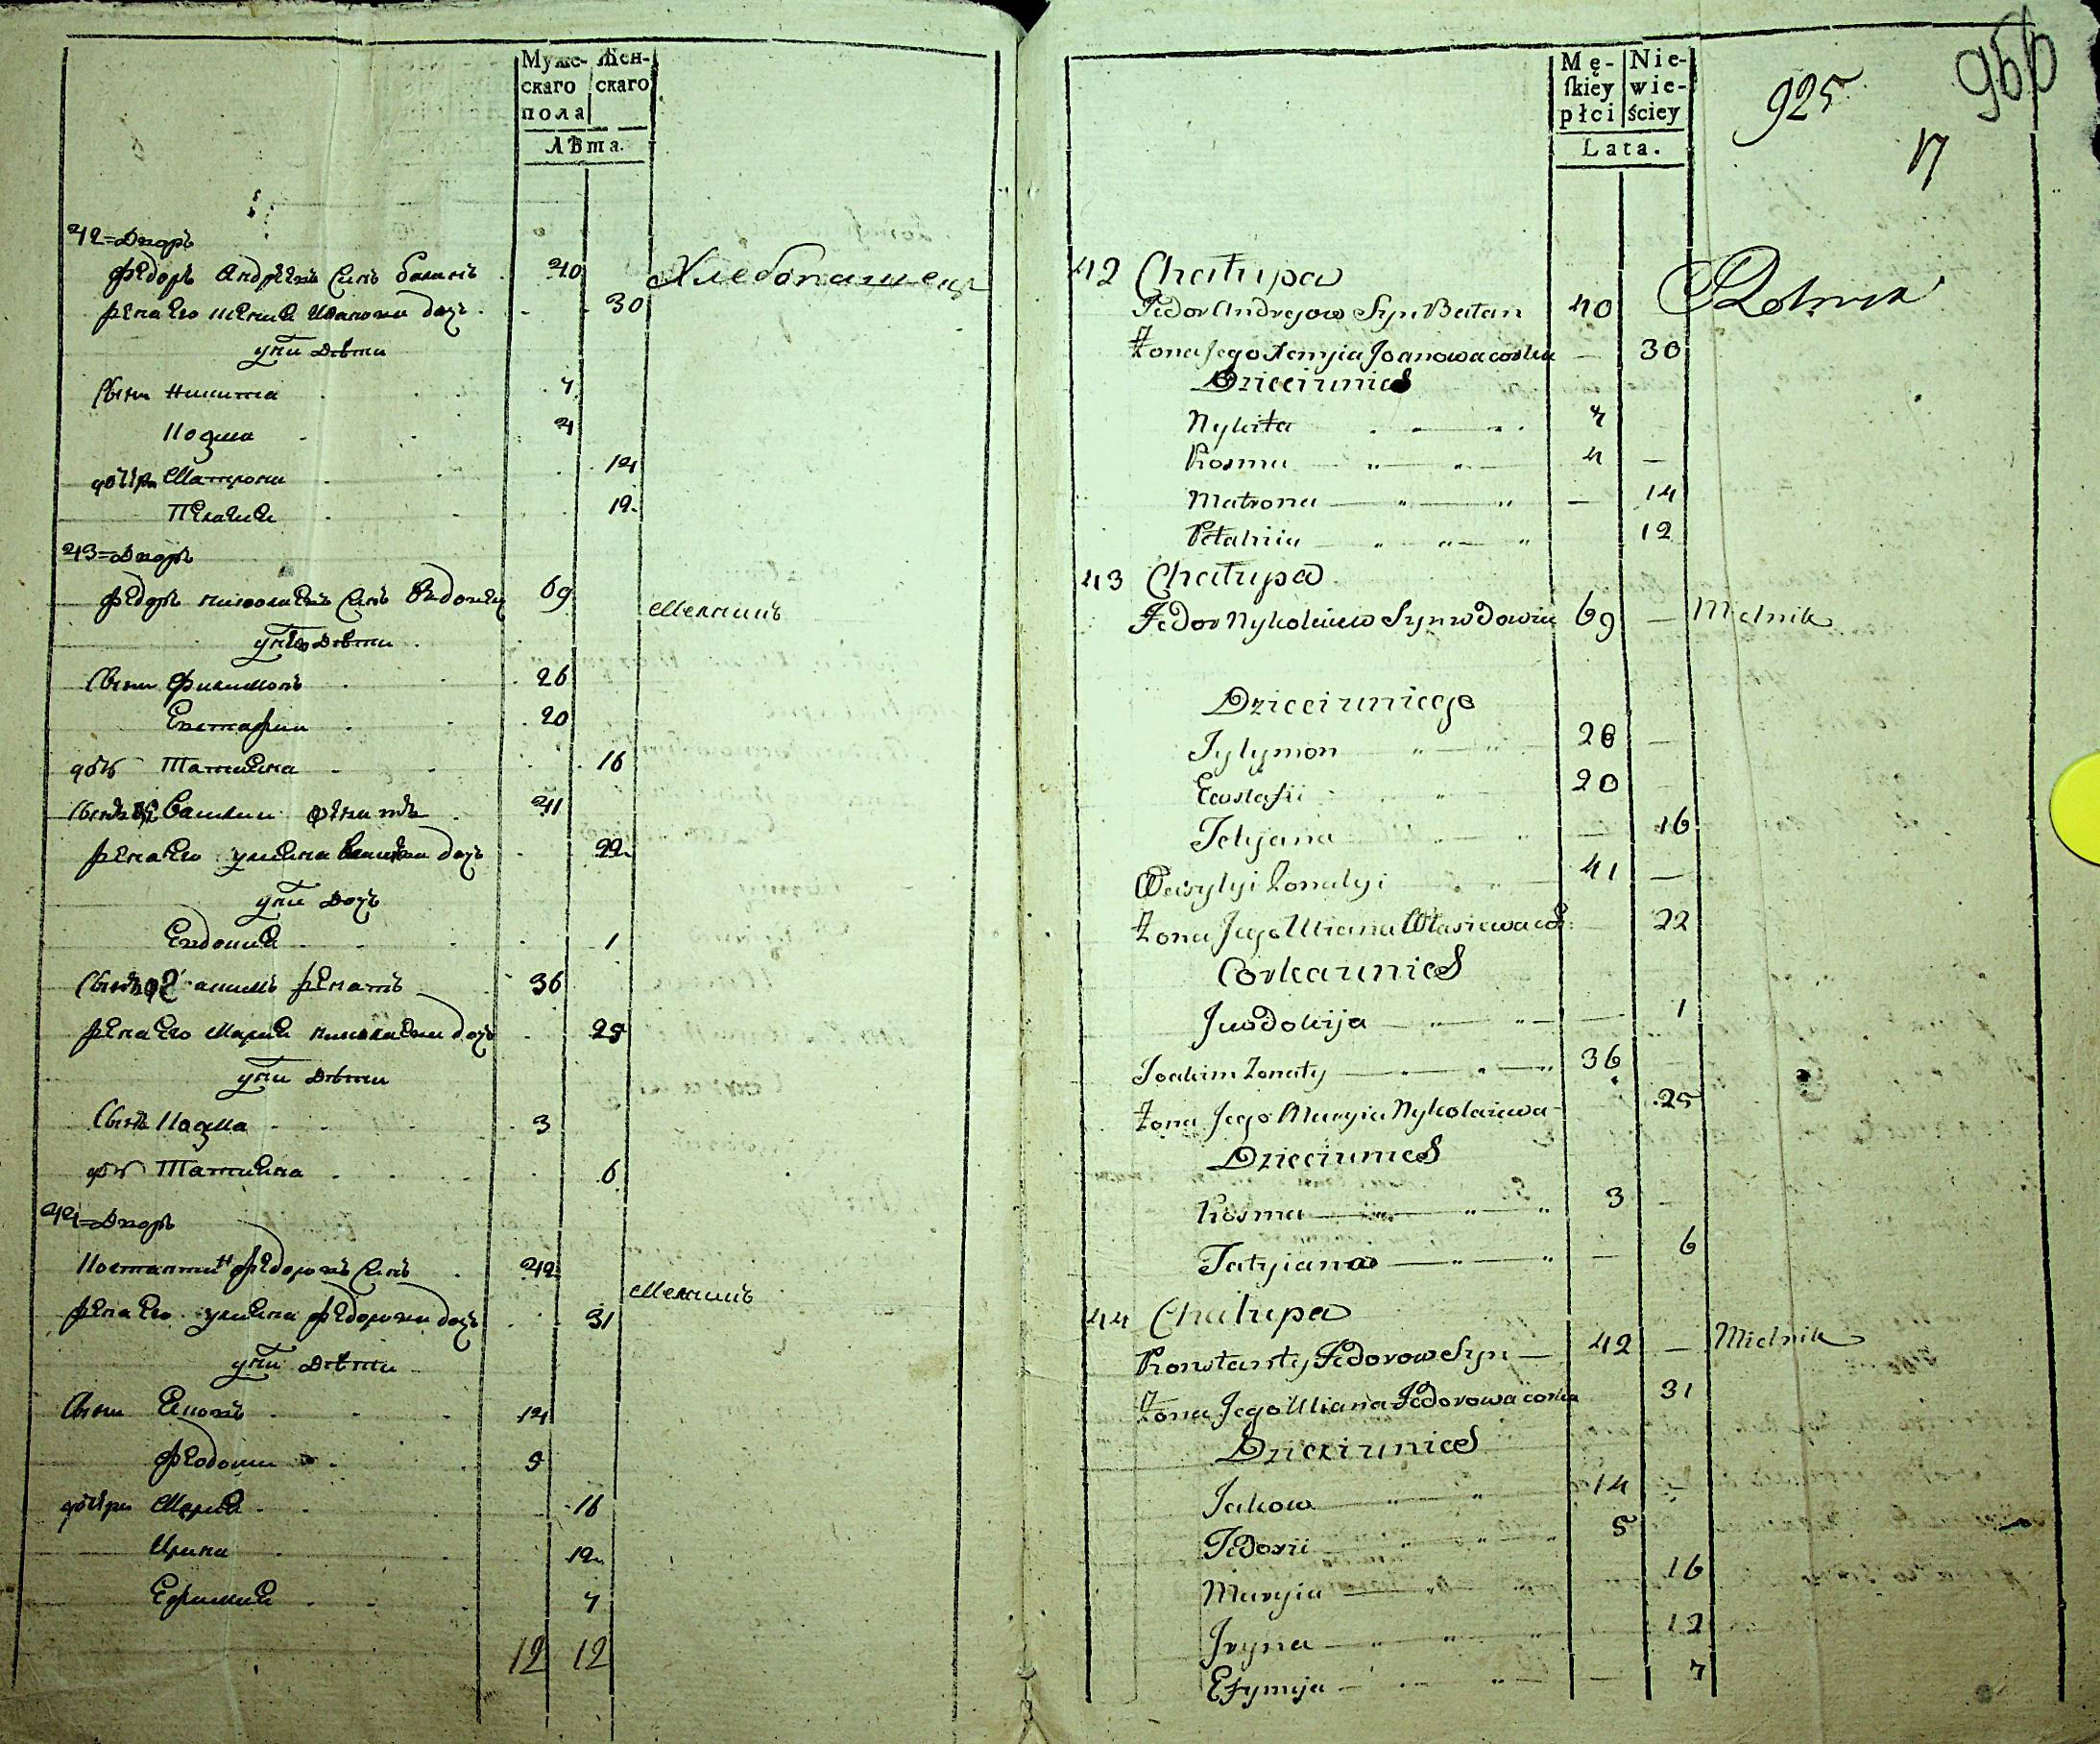 Муже-
скаго
пола
Жен-
скаго
Лѣта.
42=Дворъ
Федоръ Андреевъ Синъ Баланъ 40 Хлебопашецъ
Жена Его Ксения Иванова дочь 30
у них Дѣти
Сыни Никита 7
Козма 4
дочери Матрона 14
Пелагия 12
43=Дворъ
Федоръ Николаевъ Синъ Вдовец 69 Мелникъ
у него Дѣти
Сыни Филимонъ 26
Евстафии 20
дочь Татияна 16
Синъ Василии Женатъ 41
Жена Его Улияна дочь 22
у них Дочь
Евдокия 1
Синъ Якимъ Женатъ 36
Жена Его Мария Николаева дочь 25
у них Дѣти
Синъ Козма 3
дочь Татияна 6
44=Дворъ
Костантин Федоровъ Синъ 42 Мелникъ
Жена Его Улияна Федорова дочь 31
у них Дѣти
Сыни Яковъ 14
Федосии 5
дочери Мария 16
Ирина 12
Ефимия 7
12 12
Mę-
ſkiey
płci
Nie-
wie-
ściey
Lata.
925
966
17
42 Chałupa
Fedor Andrejow Syn Bałan 40 Rolnik
Żona Jego Xenyia Joanowa corka — 30
Dzieci u nich
Nykita 7
Kosma 4 —
Matrona — 14
Pełahiia 12
43 Chałupa
Fedor Nykołaiew Syn wdowiec 69 — Mielnik
Dzieci u niego
Fylymon 26 —
Ewstafii 20
Tetyana — 16
Wasylyi Żonatyi 41 —
Żona Jego Uliana Własiewa co: 22
Corka u nich
Jwdokija — 1
Joakim Żonaty 36
Żona Jego Maryia Nykolaiewa 25
Dzieci u nich
Kosma 3 —
Tatyiana — 6
44 Chałupa
Konstanty Fedorow Syn 42 — Mielnik
Żona Jego Uliana Fedorowa corka 31
Dzieci u nich
Jakow 14 —
Fedosii 5
Maryia 16
Jryna 12
Efymija — 7